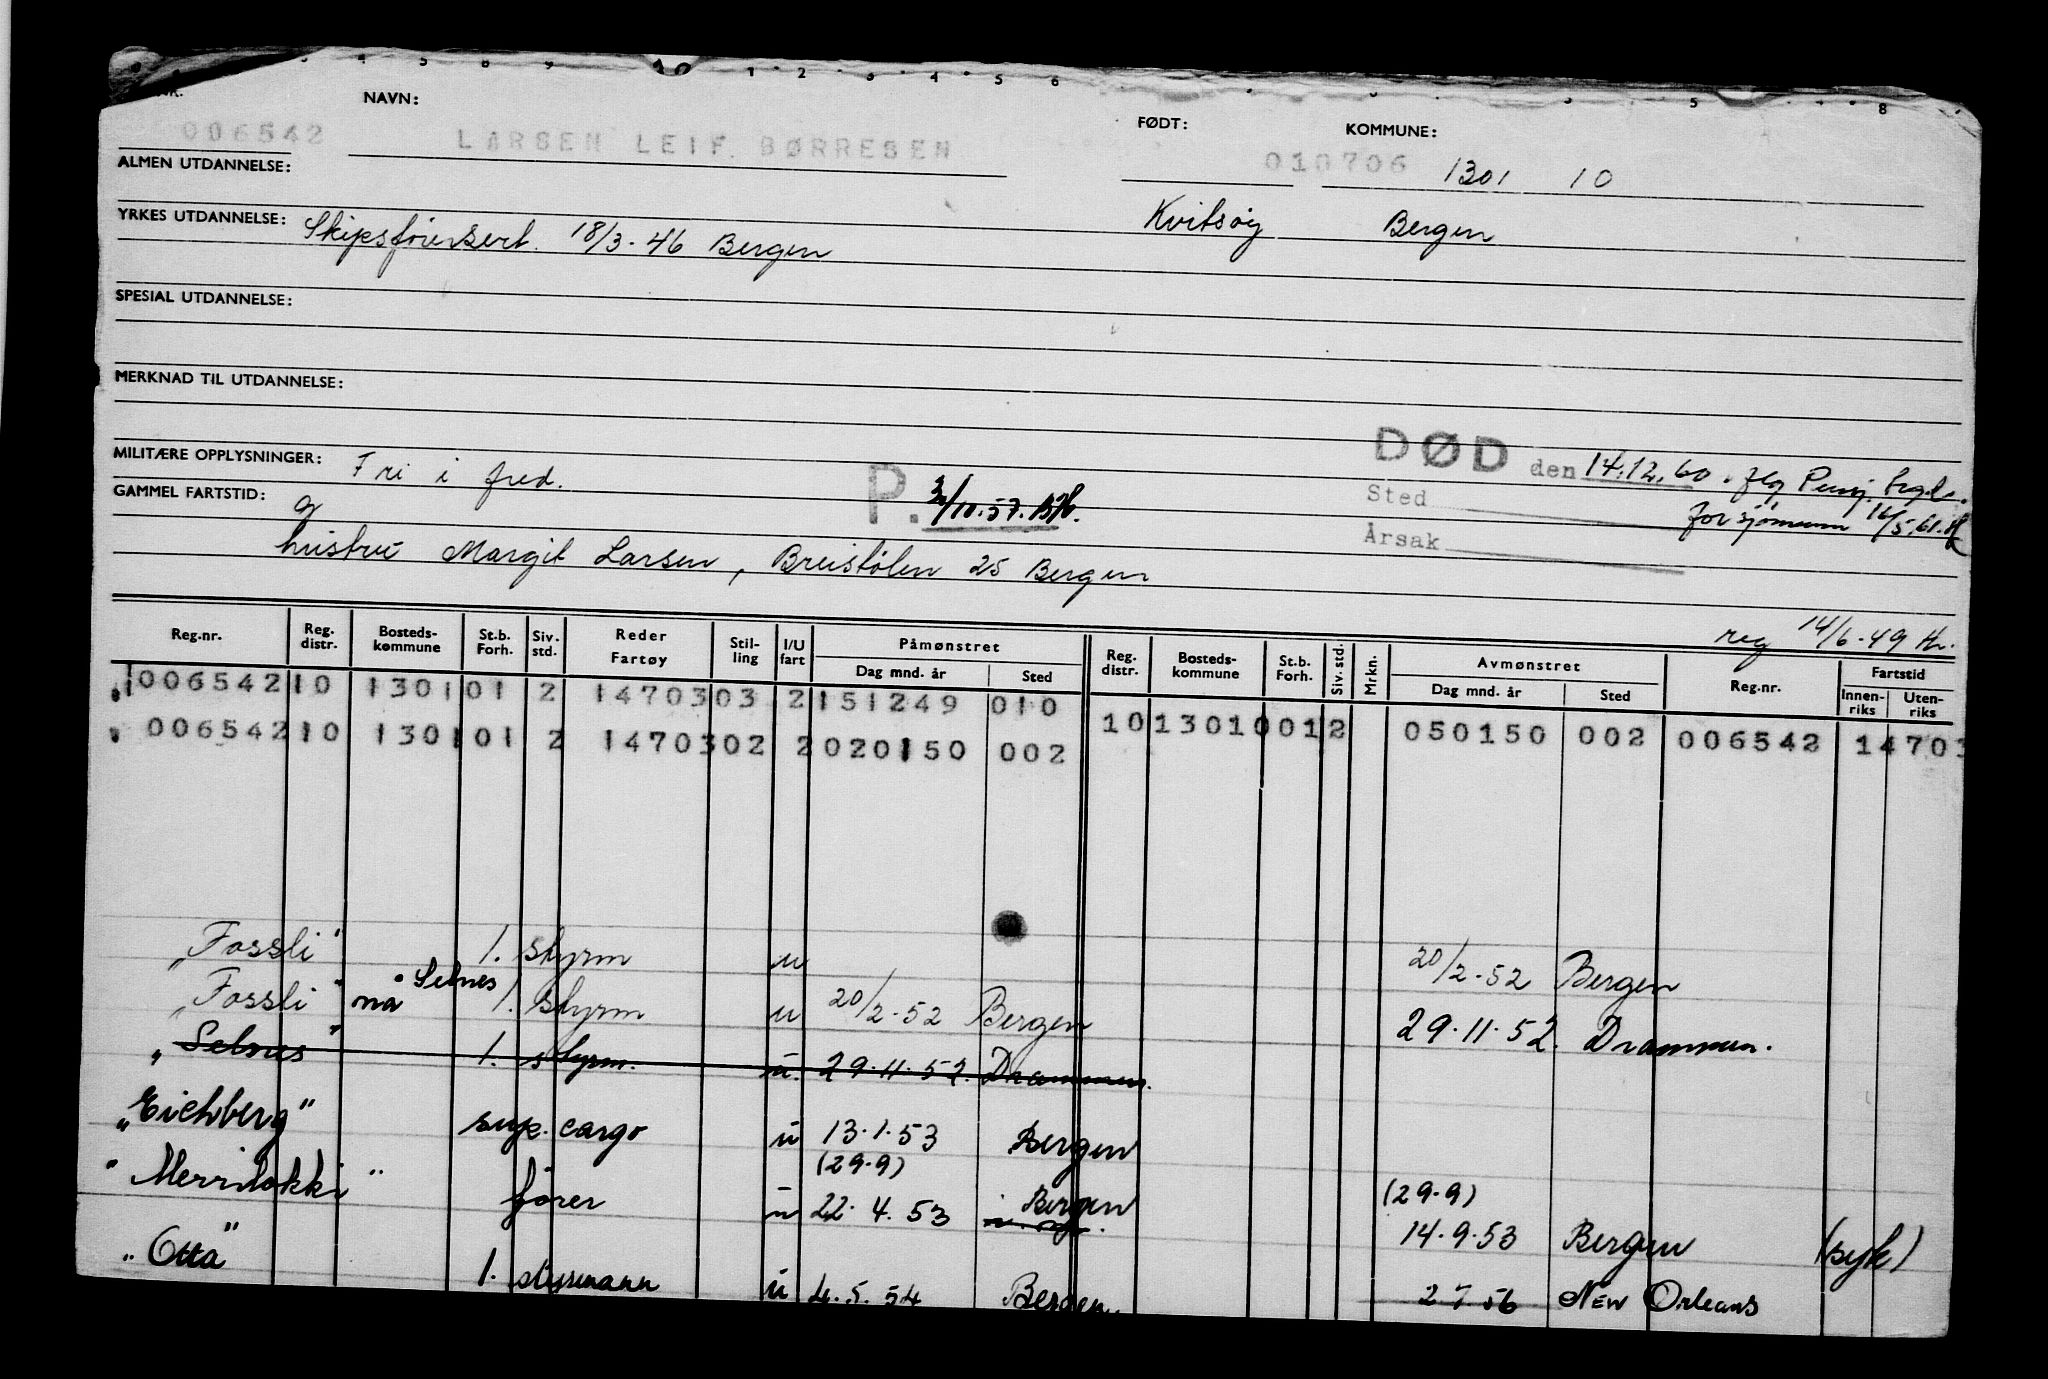 NR. NAVN: FØDT: KOMMUNE:
006542 LARSEN LEIF BØRRESEN 010706 1301 10
ALMEN UTDANNELSE:
YRKES UTDANNELSE: Skipsførersert. 18/3-46 Bergen Kvitsøy Bergen
SPESIAL UTDANNELSE:
MERKNAD TIL UTDANNELSE:
MILITÆRE OPPLYSNINGER: Fri i fred. P. DØD den 14.12.60. flg Pensj.
GAMMEL FARTSTID: Sted for sjømenn 16/5.61.
Årsak
hustru Margit Larsen, Breistølen 25 Bergen
reg 14/6-49
Reg.nr. Reg. distr. Bosteds- kommune St.b. Forh. Siv. std. Reder Fartøy Stil- ling I/U fart Påmønstret Dag mnd. år Sted Reg. distr. Bosteds- kommune St.b. Forh. Siv. std. Mrkn. Avmønstret Dag mnd. år Sted Reg.nr. Fartstid Innen- riks Uten- riks
006542 10 1301 01 2 14703 03 2 151249 010
006542 10 1301 01 2 14703 02 2 020150 002 10 13010 01 2 050150 002 006542 14703
"Fossli" 1. styrm u 20/2-52 Bergen
"Fossli" nå "Selnes 1. styrm u 20/2-52 Bergen 29.11.52. Drammen.
"Selnes" 1. styrm. u. 29.11.52. Drammen.
"Eichberg" sup. cargo u 13.1.53 Bergen
(29.9) (29.9)
"Merrilokki" fører u 22.4.53 Bergen 14.9.53 Bergen (syk)
"Otta" 1. styrmann u 4.5.54 Bergen 2 7 56 New Orleans